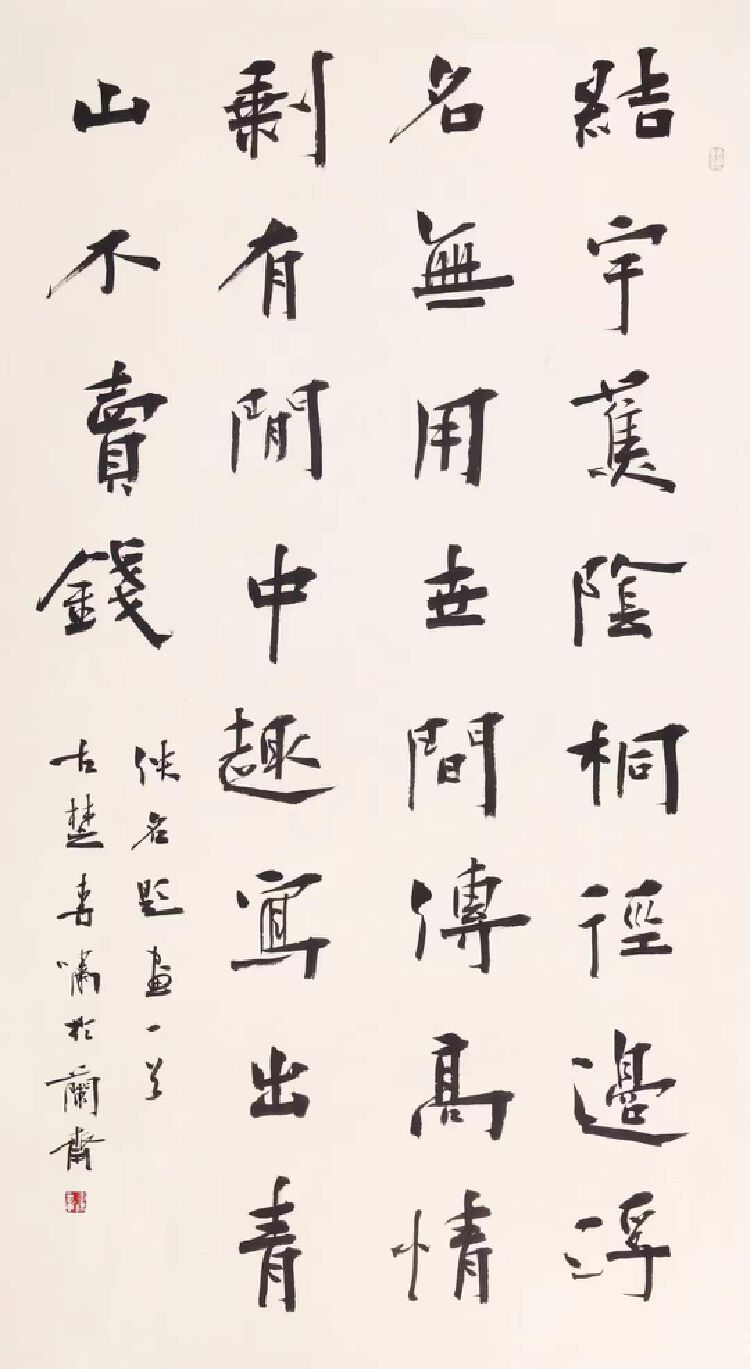 結宇蕉陰桐徑邊浮
名無用世間傳高情
剩有閒中趣寫出青
山不賣錢
佚名題畫一首
古楚嘯於蘭齋